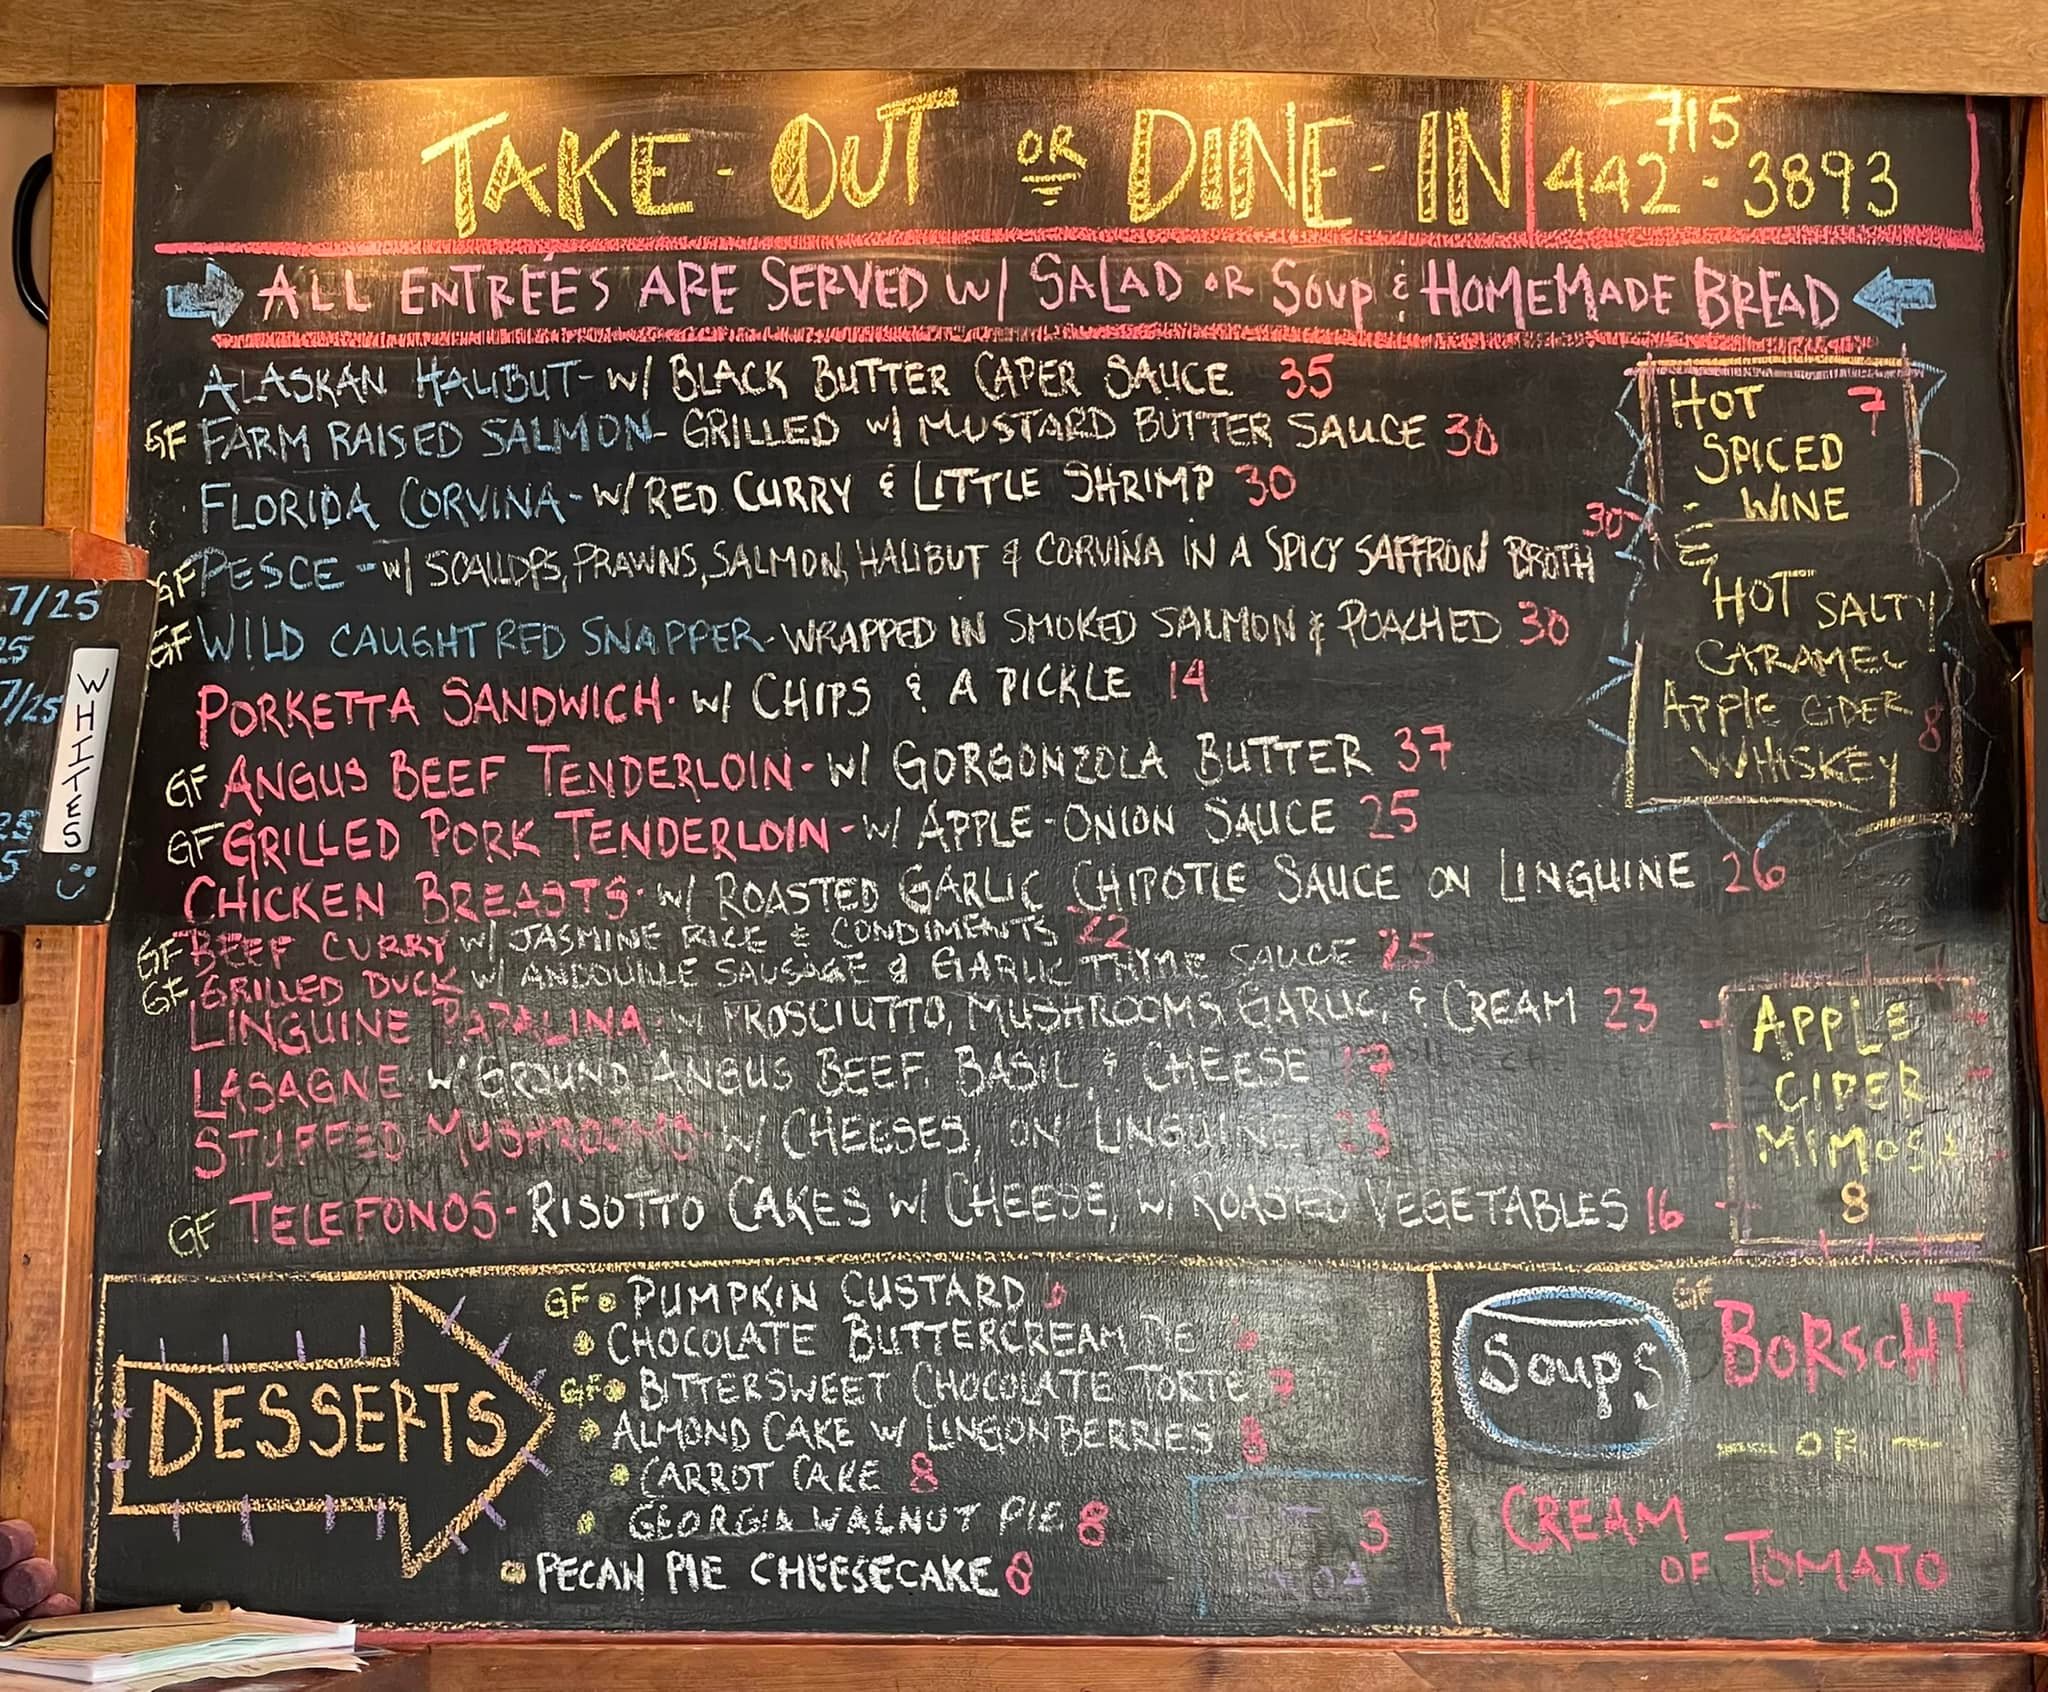 TAKE-OUT OR DINE-IN
715
442-3893
ALL ENTRÉES ARE SERVED W/ SALAD OR SOUP & HOMEMADE BREAD
ALASKAN HALIBUT- W/ BLACK BUTTER CAPER SAUCE 35
GF FARM RAISED SALMON- GRILLED W/ MUSTARD BUTTER SAUCE 30
FLORIDA CORVINA- W/ RED CURRY & LITTLE SHRIMP 30
GF PESCE - W/ SCALLOPS, PRAWNS, SALMON, HALIBUT & CORVINA IN A SPICY SAFFRON BROTH 30
GF WILD CAUGHT RED SNAPPER- WRAPPED IN SMOKED SALMON & POACHED 30
PORKETTA SANDWICH- W/ CHIPS & A PICKLE 14
GF ANGUS BEEF TENDERLOIN- W/ GORGONZOLA BUTTER 37
GF GRILLED PORK TENDERLOIN- W/ APPLE-ONION SAUCE 25
CHICKEN BREASTS- W/ ROASTED GARLIC CHIPOTLE SAUCE ON LINGUINE 26
GF BEEF CURRY W/ JASMINE RICE & CONDIMENTS 22
GF GRILLED DUCK W/ ANDOUILLE SAUSAGE & GARLIC THYME SAUCE 25
LINGUINE PAPALINA- W/ PROSCIUTTO, MUSHROOMS, GARLIC, & CREAM 23
LASAGNE- W/ GROUND ANGUS BEEF, BASIL, & CHEESE 17
STUFFED MUSHROOMS- W/ CHEESES, ON LINGUINE 23
GF TELEFONOS- RISOTTO CAKES W/ CHEESE, W/ ROASTED VEGETABLES 16
HOT 7
SPICED
WINE
&
HOT SALTY
CARAMEL
APPLE CIDER
WHISKEY 8
APPLE
CIDER
MIMOSA
8
DESSERTS
GF PUMPKIN CUSTARD
CHOCOLATE BUTTERCREAM PIE
GF BITTERSWEET CHOCOLATE TORTE 7
ALMOND CAKE W/ LINGONBERRIES 8
CARROT CAKE 8
GEORGIA WALNUT PIE 8
PECAN PIE CHEESECAKE 8
3
SOUPS
GF BORSCHT
- OR -
CREAM
OF TOMATO
7/25
25
7/25
25
5
WHITES